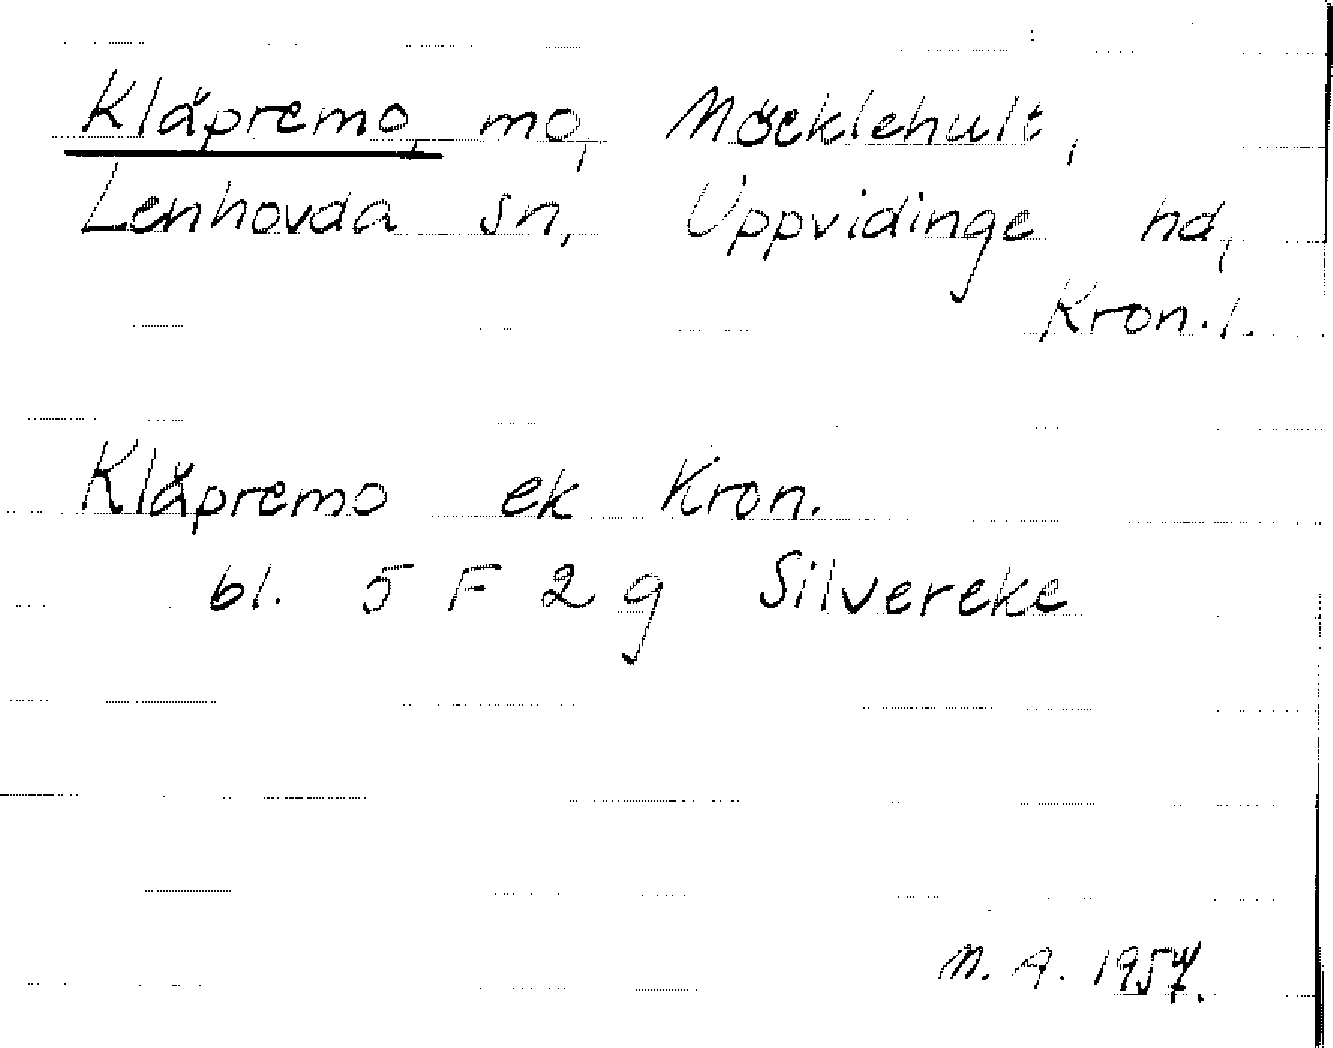 Kläpremo, mo, Möcklehult,
Lenhovda sn, Uppvidinge hd,
Kron.l.
Kläpremo ek Kron.
bl. 5 F 2 g Silvereke
M. A. 1957.